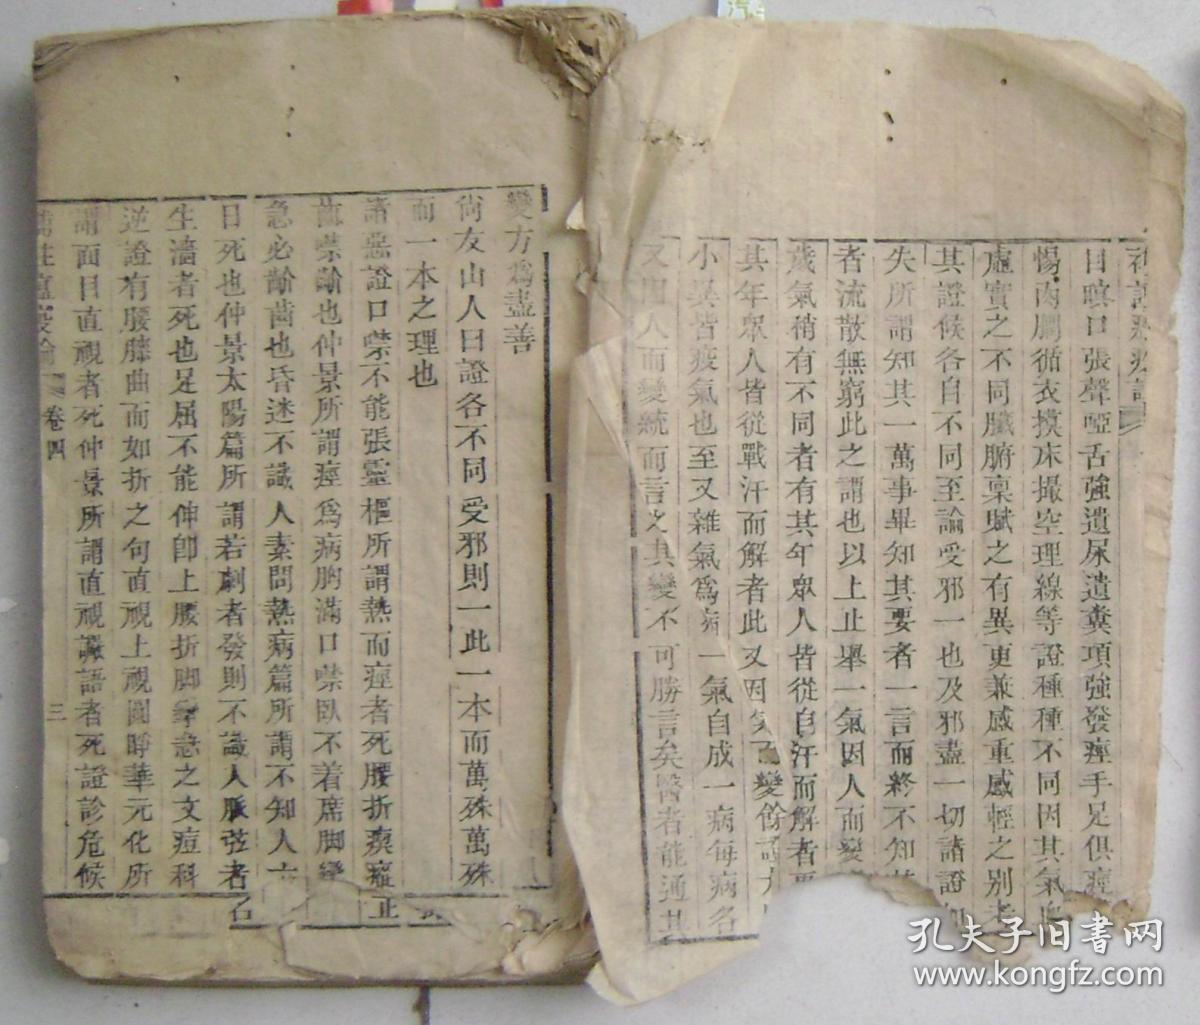 目瞋口張聲啞舌強遺尿遺糞項強發痙手足俱痙
惕肉瞤循衣摸床撮空理線等證種種不同因其氣血
虛實之不同臟腑稟賦之有異更兼感重感輕之別考
其證候各自不同至論受邪一也及邪盡一切諸證如
失所謂知其一萬事畢知其要者一言而終不知其
者流散無窮此之謂也以上止舉一氣因人而變
歲氣稍有不同者有其年眾人皆從自汗而解者更
其年眾人皆從戰汗而解者此又因氣而變餘證大
小異皆疫氣也至又雜氣為病一氣自成一病每病各
又因人而變統而言之其變不可勝言矣醫者能通其
變方為盡善
尚友山人曰證各不同受邪則一此一本而萬殊萬殊
而一本之理也
諸惡證口噤不能張靈樞所謂熱而痙者死腰折瘈瘲
齒噤齘也仲景所謂痙為病胸滿口噤臥不着席脚攣
急必齘齒也昏迷不識人素問熱病篇所謂不知人六
日死也仲景太陽篇所謂若劇者發則不識人脈弦者
生濇者死也足屈不能伸卽上腰折脚攣急之文痘科
逆證有腰膝曲而如折之句直視上視圓睜華元化所
謂面目直視者死仲景所謂直視譫語者死證診危候
卷四
三
孔夫子旧書网
www.kongfz.com